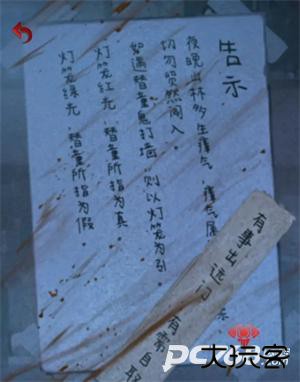 告示
夜晚山林多生瘴气，瘴气
切勿贸然闯入。
如遇替童鬼打墙，则以灯笼为引
灯笼红光，替童所指为真
灯笼绿光，替童所指为假
有事出远门
有需自取
大玩客